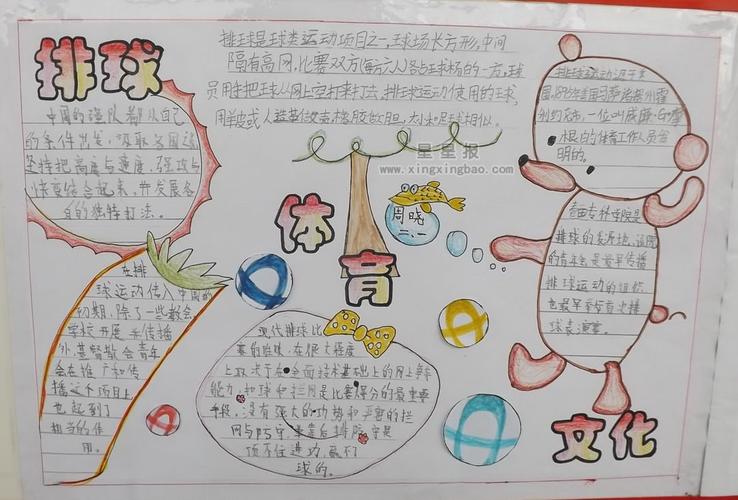 排球
排球是球类运动项目之一,球场长方形,中间
隔有高网,比赛双方(每方六人)各占球场的一方,球
员用手把球从网上空打来打去。排球运动使用的球,
用羊皮或人造革做壳,橡胶做胆,大小和足球相似。
中国的强队都从自己
的条件出发,吸取各国
坚持把高度与速度、强攻与
快变结合起来,并发展各
自的独特打法。
排球运动源于美
国
一位叫威廉·
根的体育工作人员发
明的。
学院是
排球的发源地,
的
排球运动的组织
也最早
球表演赛。
在排
球运动传入中国的
初期,除了一些教会
学校开展并传播
外,基督教会青年
会在推广和传
播这个项目上
也起到了
相当的作
用。
星星报
www.xingxingbao.com
周晓
二.一
体育
现代排球比
赛的胜败,在很大程度
上取决于在全面技术基础上的网上争夺
能力,扣球和拦网是比赛得分的最重要
手段,没有强大的攻势和严密的拦
网与防守,单靠后排防守是
顶不住进攻,赢不了
球的。
文化